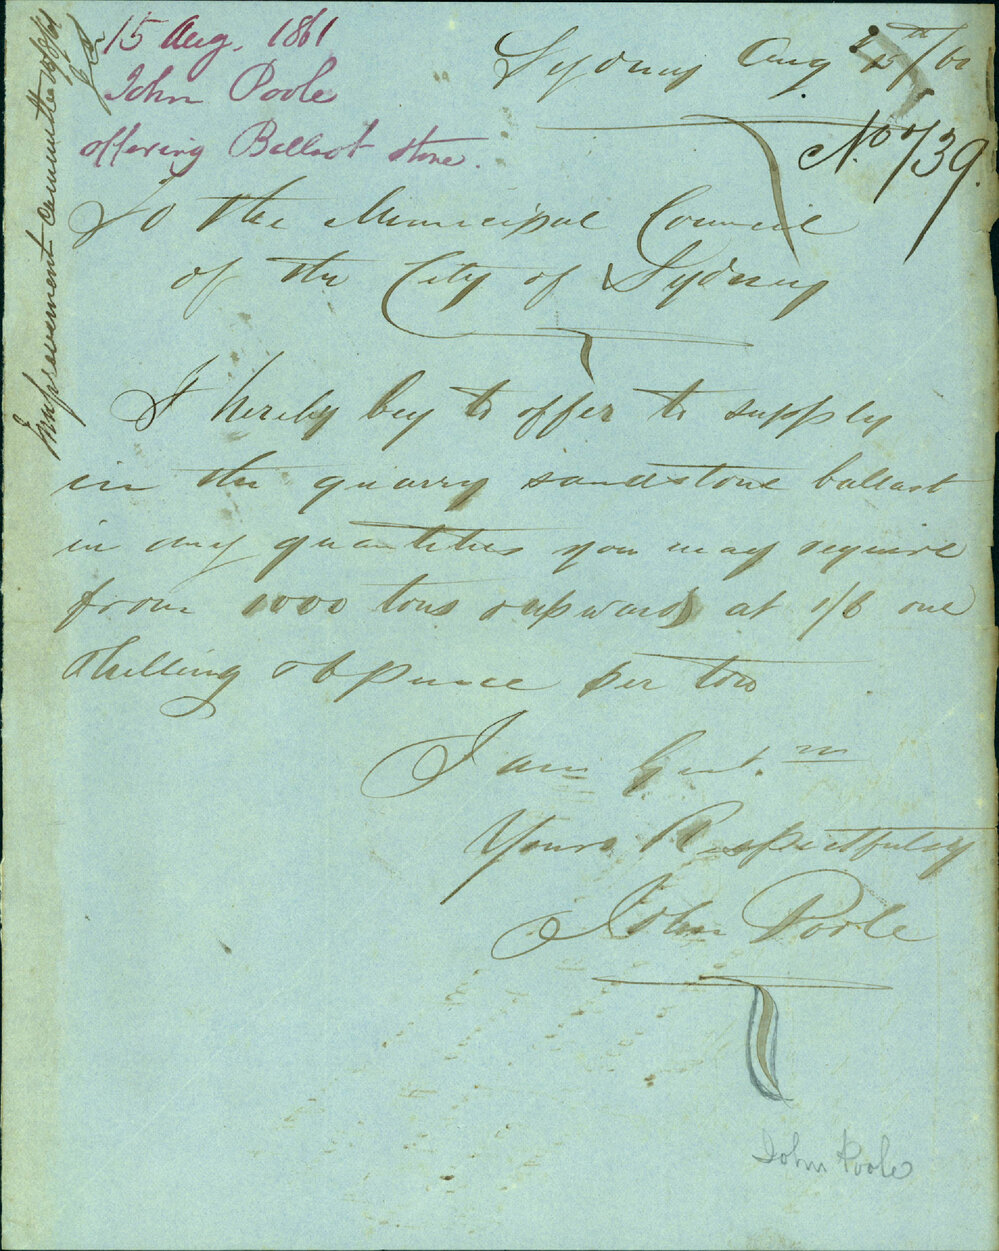 15 Aug. 1861
John Poole
offering Ballast stone.
Improvement Committee
Sydney Aug 15th/61
No. 739.
To the Municipal Council
of the City of Sydney
I hereby beg to offer to supply
in the quarry sandstone ballast
in any quantities you may require
from 1000 tons & upwards at 1/6 one
shilling & 6 pence per ton
I am Gent.m
Yours Respectfully
John Poole
John Poole